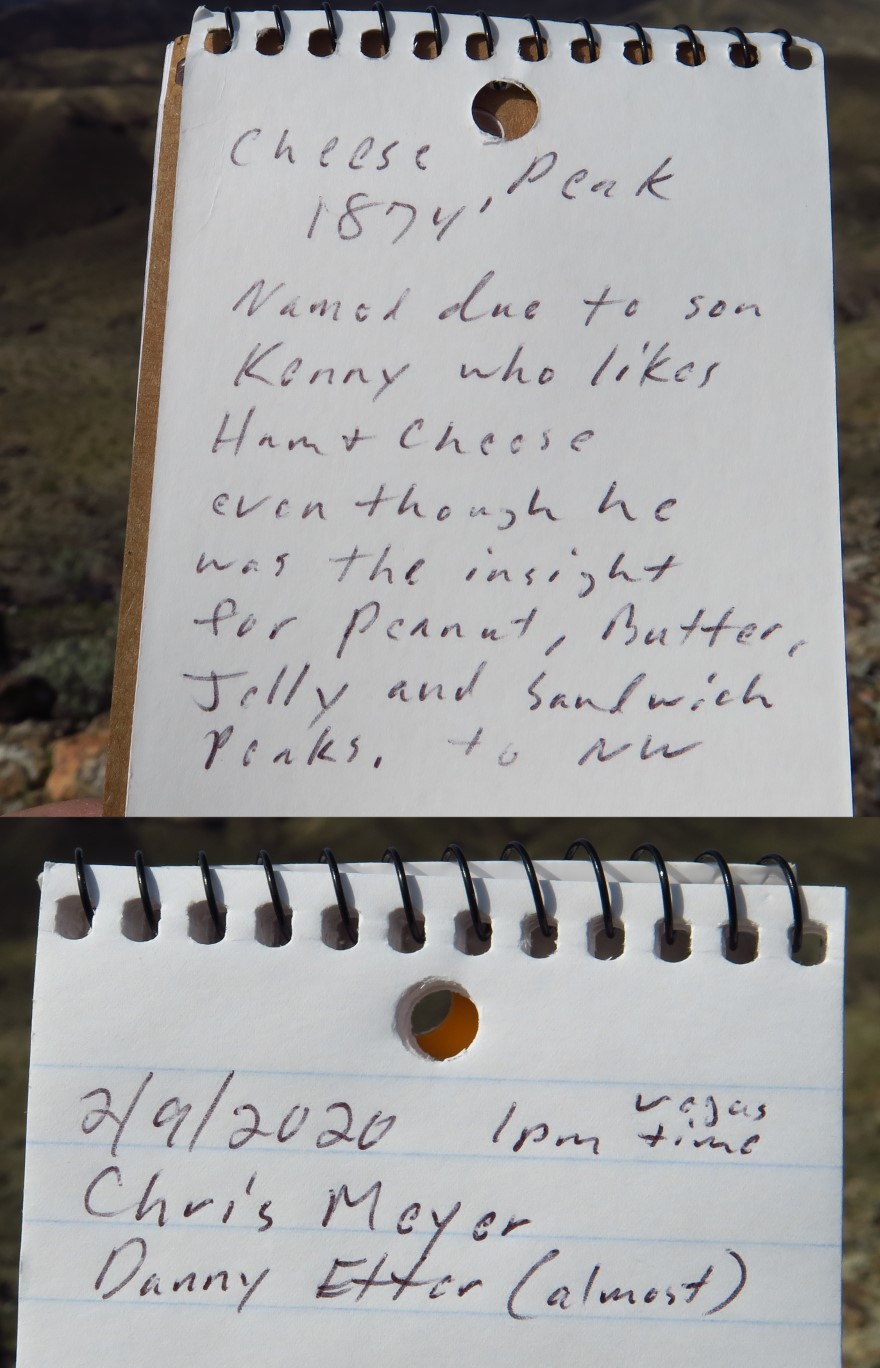 Cheese Peak
1874'
Named due to son
Kenny who likes
Ham + Cheese
even though he
was the insight
for Peanut, Butter,
Jelly and Sandwich
Peaks. to NW
2/9/2020 1pm vegas time
Chris Meyer
Danny Etter (almost)